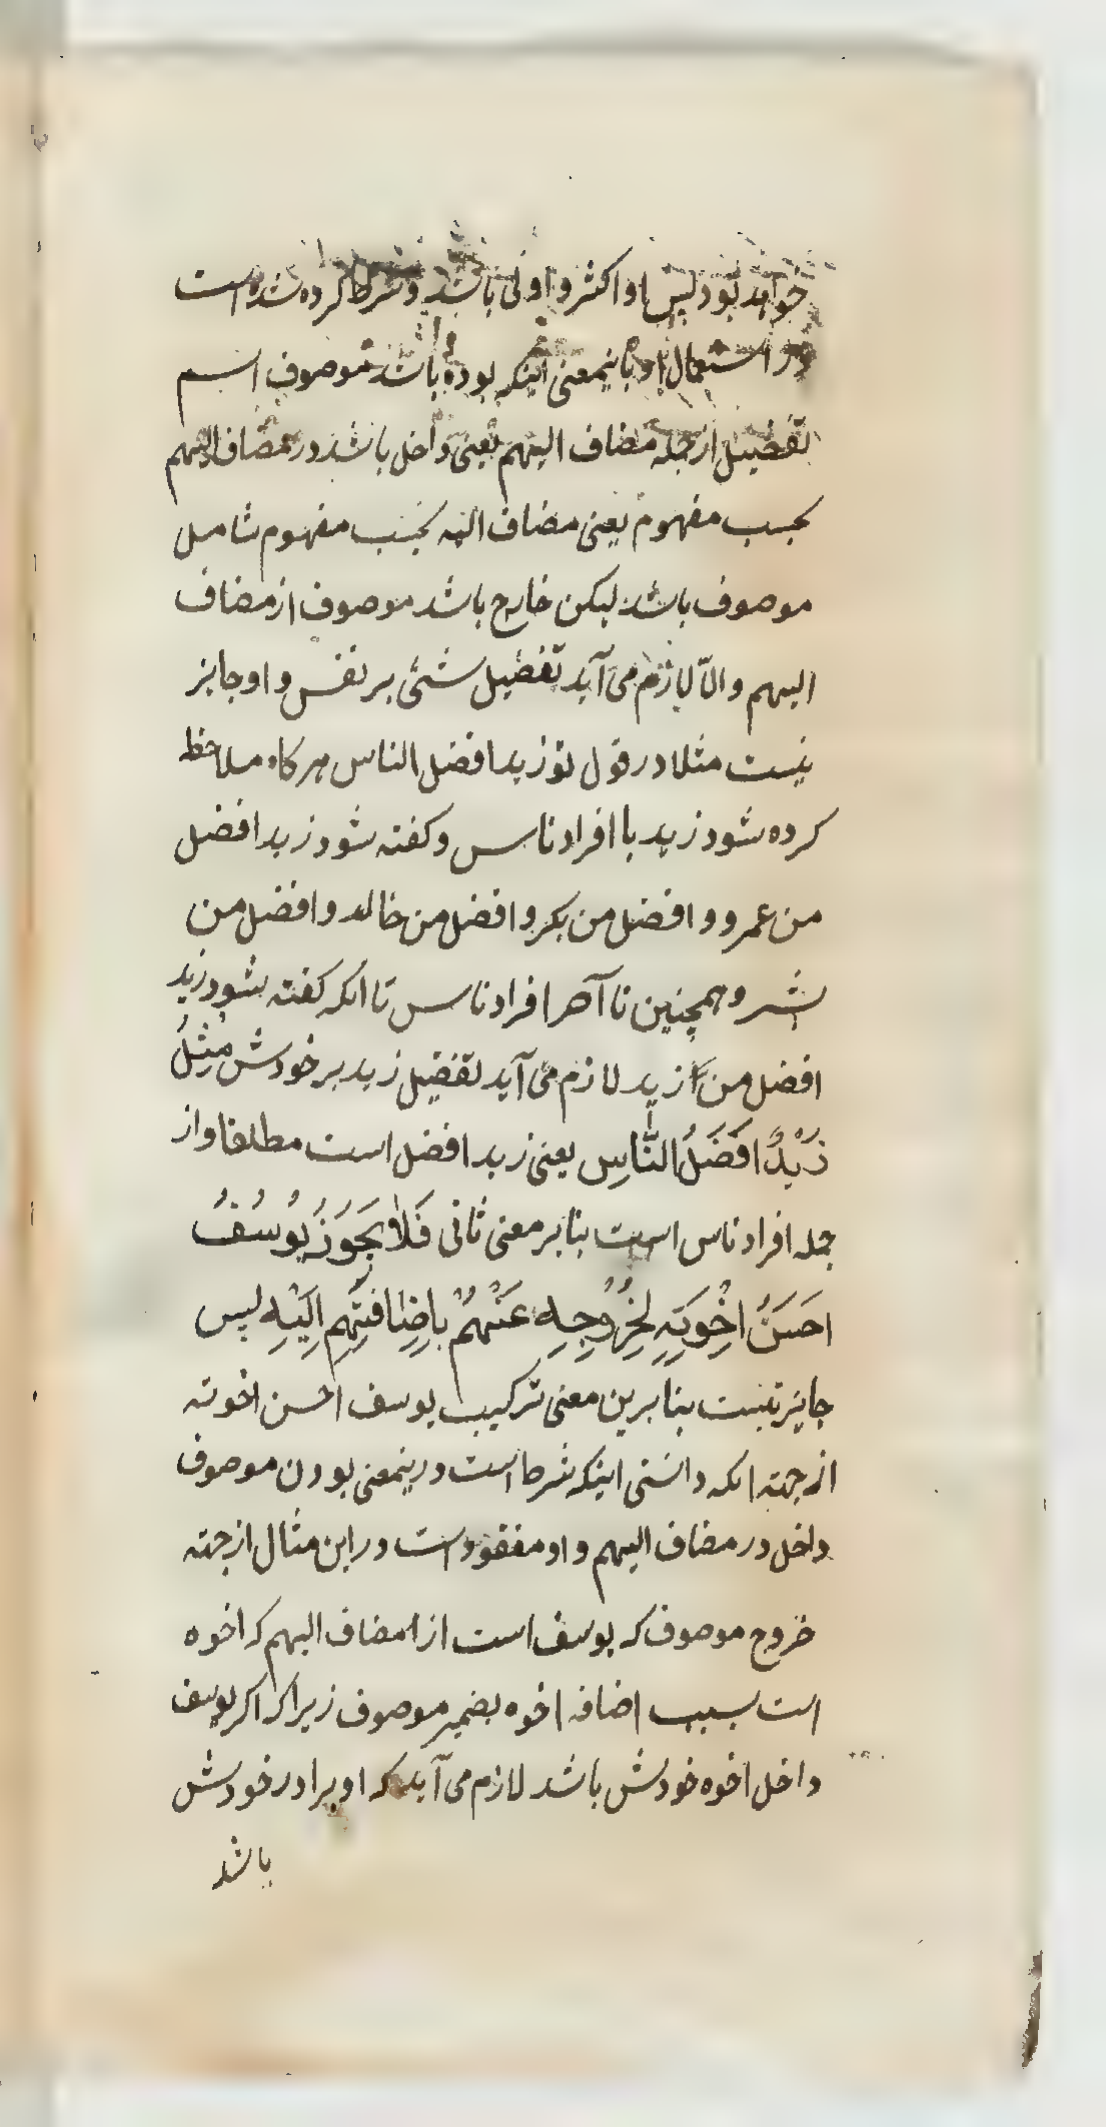 خواهد بود پس او اکثر و اولی باشد و شرط کرده شده است
در استعمال او باینمعنی اینکه بوده باشد موصوف اسم
تفضیل از جمله مضاف الیهم یعنی داخل باشد در مضاف الیهم
بحسب مفهوم یعنی مضاف الیه بحسب مفهوم شامل
موصوف باشد لیکن خارج باشد موصوف از مضاف
الیهم والّا لازم می آید تفضیل شئی بر نفس و او جایز
نیست مثلا در قول تو زید افضل الناس هرکاه ملاحظه
کرده شود زید با افراد ناس و کفته شود زید افضل
من عمرو و افضل من بکر و افضل من خالد و افضل من
بشر و همچنین تا آخر افراد ناس تا انکه کفته بشود زید
افضل من زید لازم می آید تفضیل زید بر خودش مِثْلُ
زَیْدٌ اَفْضَلُ النّاسِ یعنی زید افضل است مطلقا و از
جمله افراد ناس است بنابر معنی ثانی فَلا یَجُوزُ یُوسُفُ
اَحْسَنُ اِخْوَتِهِ لِخُرُوجِهِ عَنْهُمْ بِاِضافَتِهِم اِلَیْهِ پس
جایز نیست بنابرین معنی ترکیب یوسف احسن اخوته
از جهته انکه دانستی اینکه شرط است درینمعنی بودن موصوف
داخل در مضاف الیهم و او مفقود است در این مثال از جهته
خروج موصوف که یوسف است از مضاف الیهم که اخوه
است بسبب اضافه اخوه بضمیر موصوف زیرا که اکر یوسف
داخل اخوه خودش باشد لازم می آید که او برادر خودش
باشد